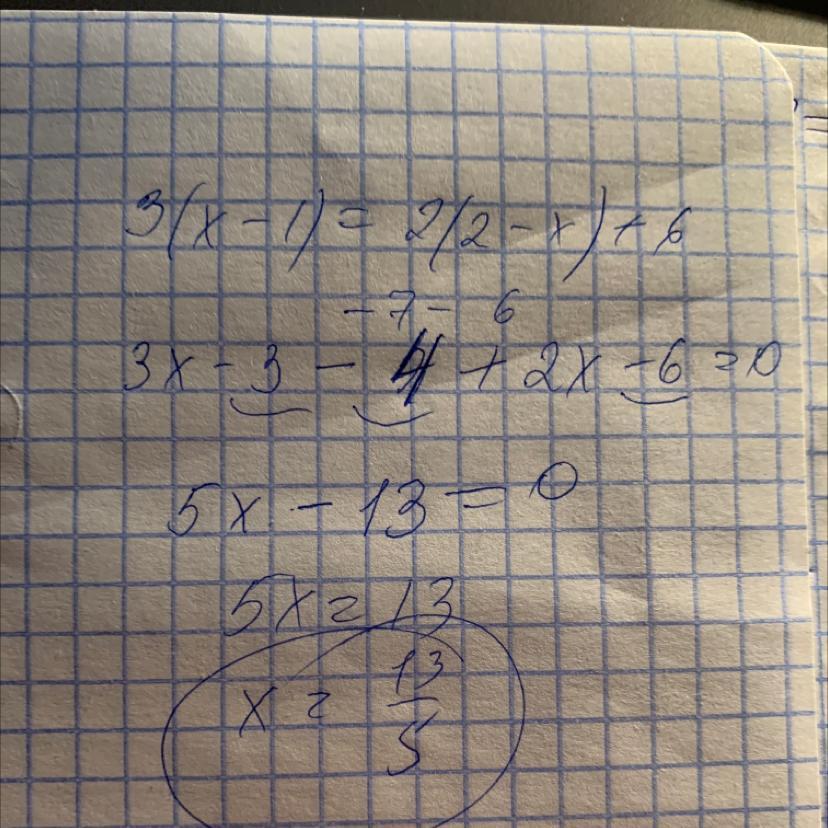 3(x - 1) = 2(2 - x) + 6
- 7 - 6
3x - 3 - 4 + 2x - 6 = 0
5x - 13 = 0
5x = 13
x = 13/5